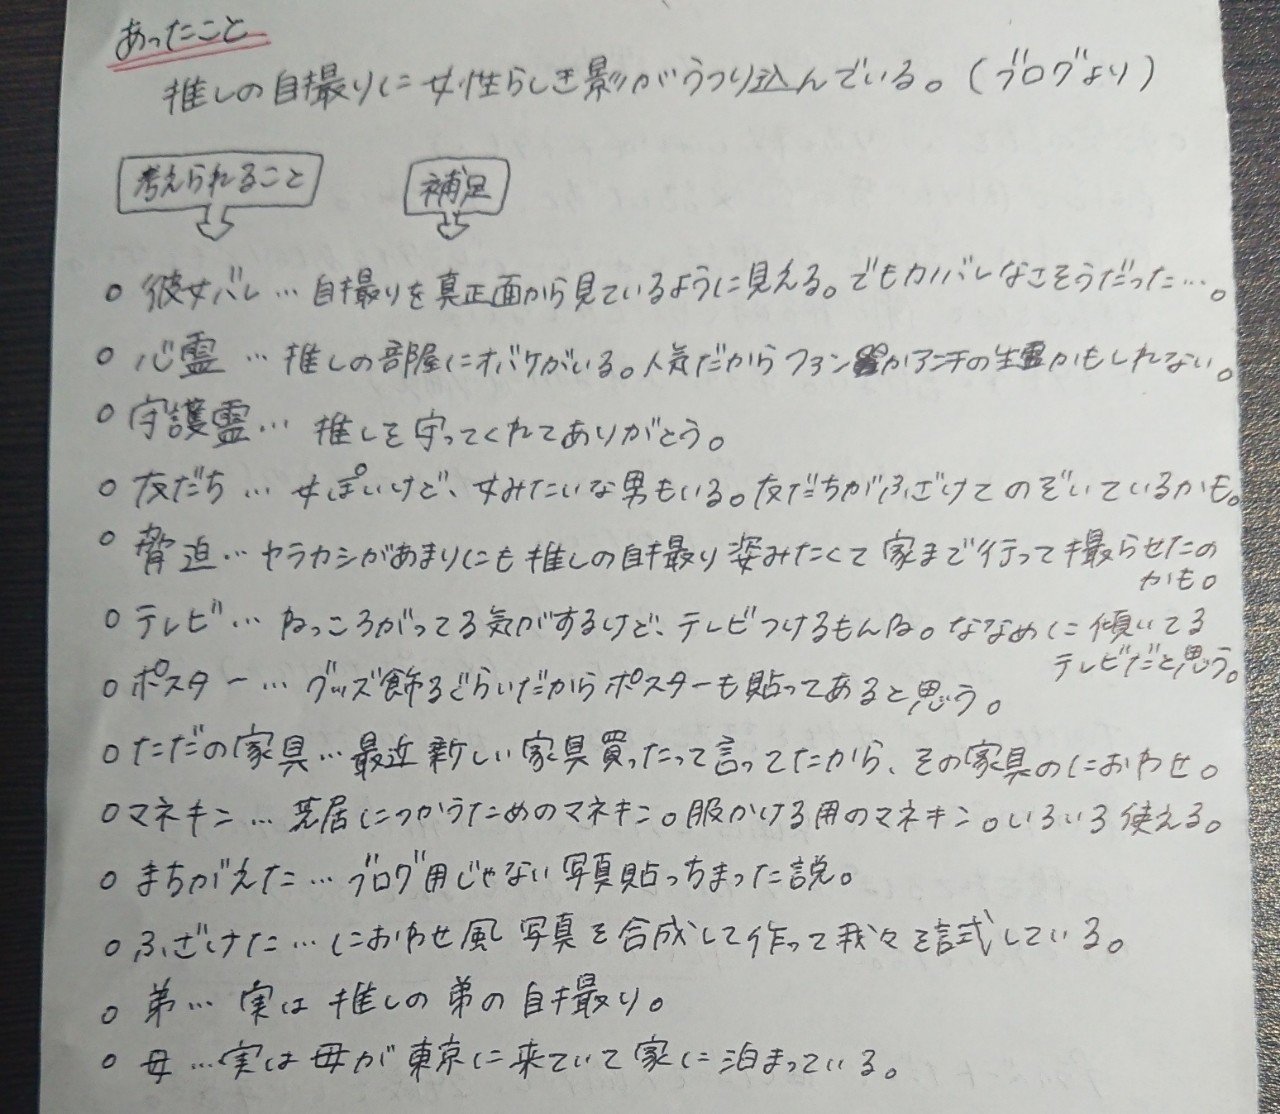 あったこと
推しの自撮りに女性らしき影がうつり込んでいる。(ブログより)
考えられること 補足
○ 彼女バレ… 自撮りを真正面から見ているように見える。でもカノバレなさそうだった…。
○ 心霊 … 推しの部屋にオバケがいる。人気だからファンかアンチの生霊かもしれない。
○ 守護霊… 推しを守ってくれてありがとう。
○ 友だち … 女ぽいけど、女みたいな男もいる。友だちがふざけてのぞいているかも。
○ 脅迫… ヤラカシがあまりにも推しの自撮り姿みたくて家まで行って撮らせたの
かも。
○ テレビ… ねっころがってる気がするけど、テレビつけるもんね。ななめに傾いてる
テレビだと思う。
○ ポスター … グッズ飾るぐらいだからポスターも貼ってあると思う。
○ ただの家具… 最近新しい家具買ったって言ってたから、その家具のにおわせ。
○ マネキン … 芝居につかうためのマネキン。服かける用のマネキン。いろいろ使える。
○ まちがえた… ブログ用じゃない写真貼っちまった説。
○ ふざけた… におわせ風写真を合成して作って我々を試している。
○ 弟… 実は推しの弟の自撮り。
○ 母 …実は母が東京に来ていて家に泊まっている。